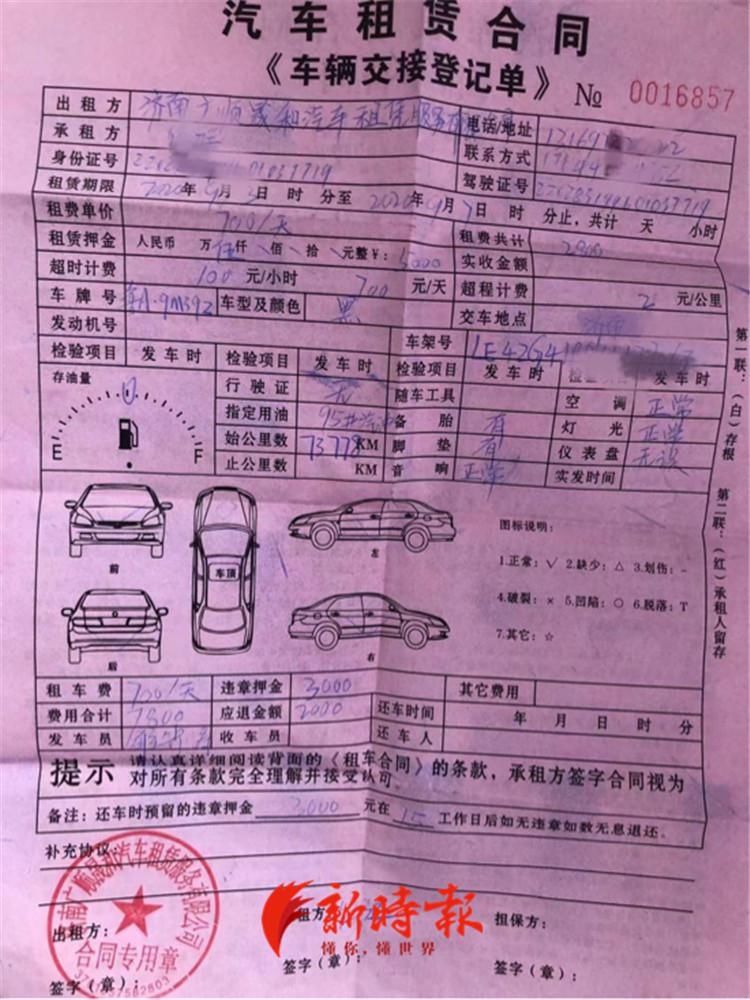 汽车租赁合同
《车辆交接登记单》 № 0016857
出租方 济南广顺晟和汽车租赁服务有限公司 电话/地址
承租方 联系方式
身份证号 驾驶证号
租赁期限 2020年9月3日 时 分至2020年9月7日 时 分止,共计 天 小时
租费单价 700/天 租费共计 2800
租赁押金 人民币 万 伍 仟 佰 拾 元整¥: 5000 实收金额
超时计费 100 元/小时 700 元/天 超程计费 2 元/公里
车牌号 车型及颜色 黑 交车地点 济南
发动机号 车架号
检验项目 发车时 检验项目 发车时 检验项目 发车时 发车时
存油量 行驶证 无 随车工具 空调 正常
指定用油 95#汽油 备胎 有 灯光 正常
始公里数 73778 KM 脚垫 有 仪表盘
E F 止公里数 KM 音响 正常 实发时间
前 车顶 左
后 右
图标说明:
1.正常:√ 2.缺少:△ 3.划伤:-
4.破裂:× 5.凹陷:○ 6.脱落:T
7.其它:☆
租车费 700/天 违章押金 3000 其它费用
费用合计 7800 应退金额 2000 还车时间 年 月 日 时 分
发车员 收车员 还车人
提示 请认真详细阅读背面的《租车合同》的条款,承租方签字合同视为
对所有条款完全理解并接受认可。
备注:还车时预留的违章押金 3000 元在 15 工作日后如无违章如数无息退还。
补充协议:
出租方: 租方: 担保方:
签字(章): 签字(章): 签字(章):
济南广顺晟和汽车租赁服务有限公司
合同专用章
新時報
懂你,懂世界
第一联:(白)存根 第二联:(红)承租人留存